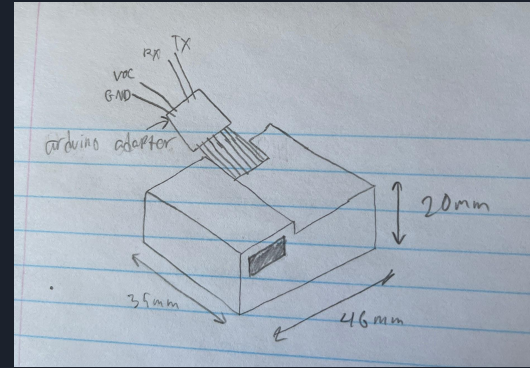 TX
RX
VCC
GND
arduino adapter
20mm
35mm
46mm